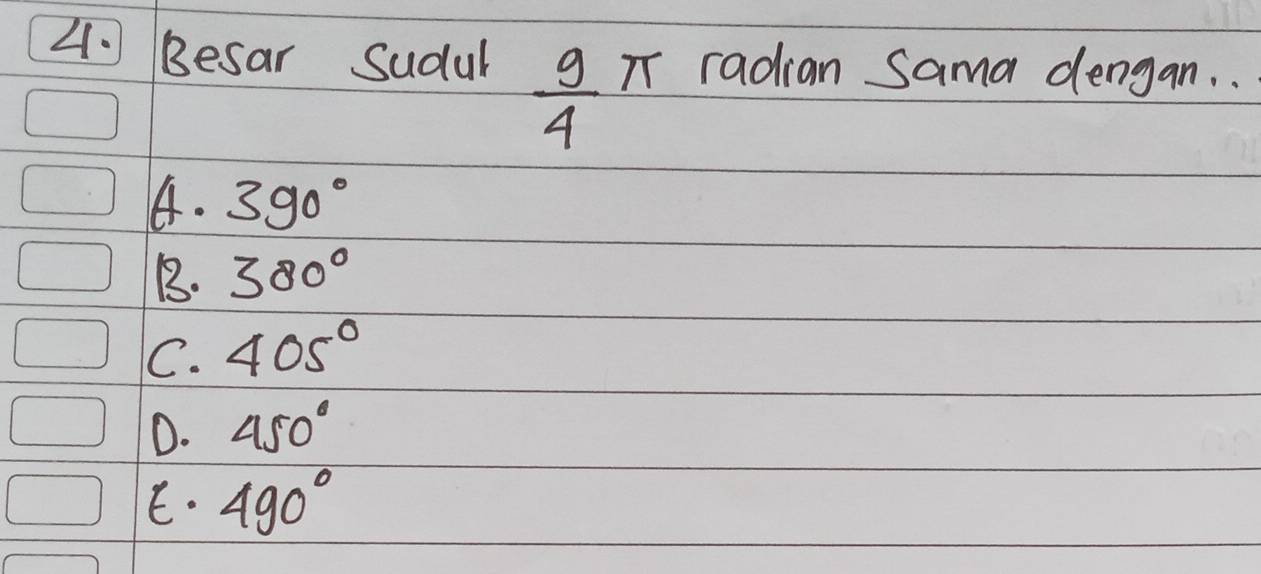 4. Besar sudut 9/4 π radian sama dengan...
A. 390°
B. 380°
C. 405°
D. 450°
E. 490°